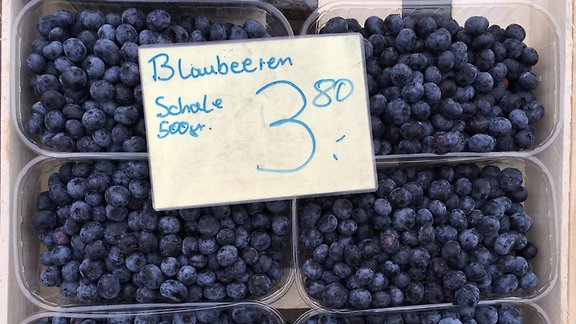 Blaubeeren
Schale 3 80
500gr. ,-